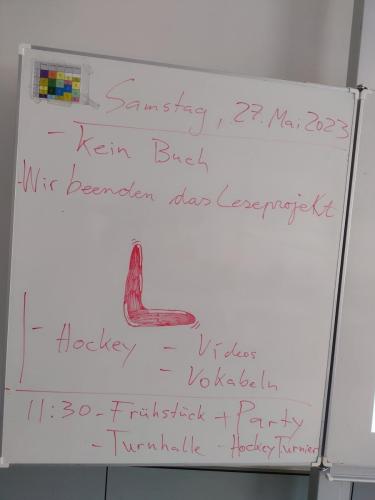 Samstag, 27. Mai 2023
- Kein Buch
- Wir beenden das Leseprojekt
- Hockey - Videos
- Vokabeln
11:30 - Frühstück + Party
- Turnhalle - Hockey Turnier